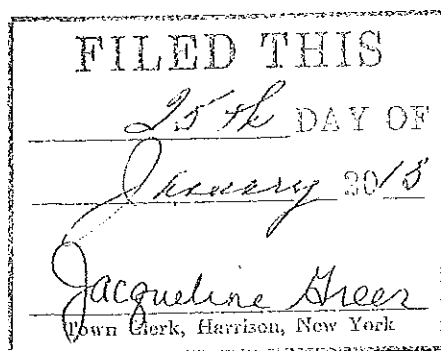 FILED THIS
25th DAY OF
January 2018
Jacqueline Greer
Town Clerk, Harrison, New York